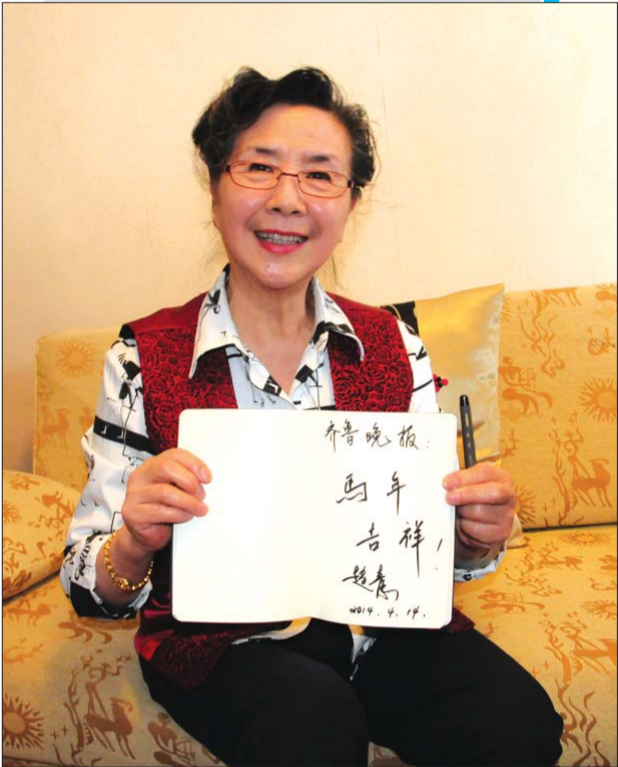 齐鲁晚报：
馬年
吉祥！
2014.4.14.